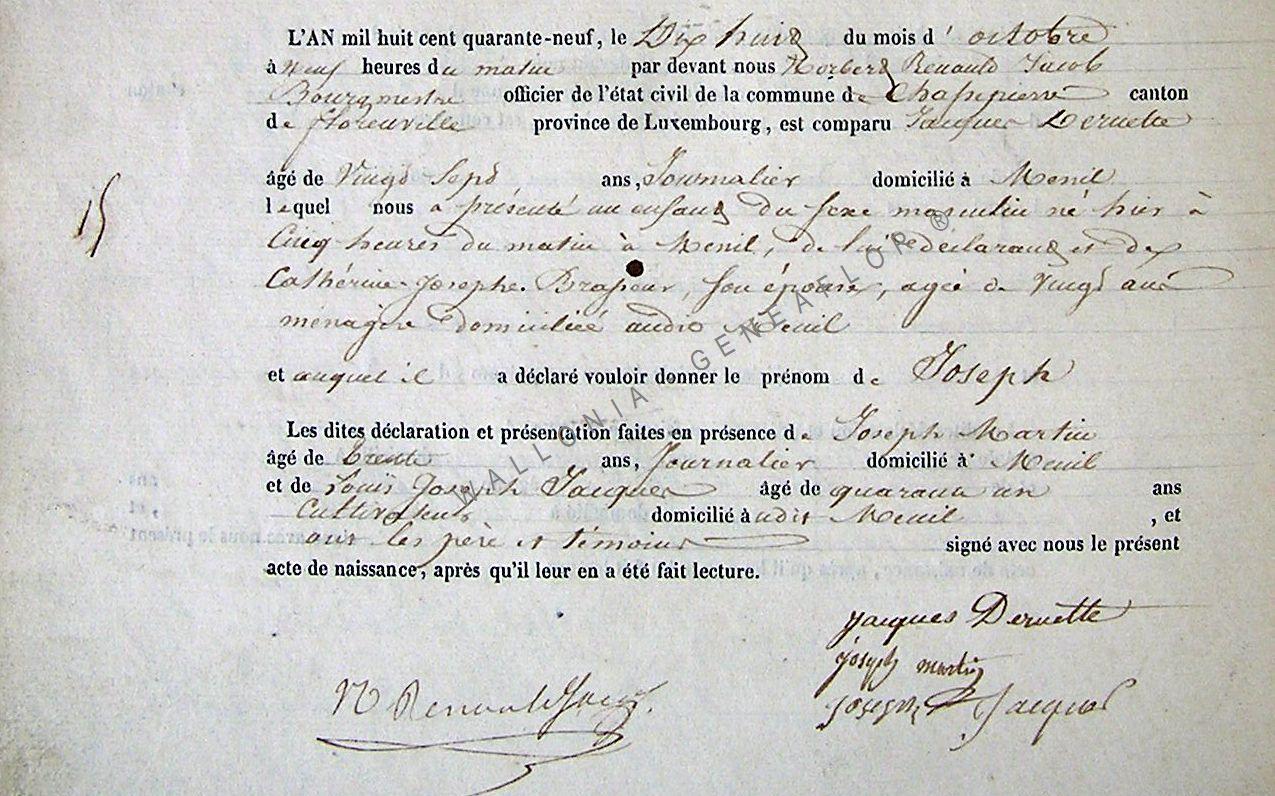 L'AN mil huit cent quarante-neuf, le Dix huit du mois d'octobre
à neuf heures du matin par devant nous Norbert Renauld Jacob
Bourgmestre officier de l'état civil de la commune de Chassepierre canton
de florenville province de Luxembourg, est comparu Jacques Deruette
âgé de Vingt Sept ans, Journalier domicilié à Menil
lequel nous a présenté un enfant du sexe masculin né hier à
Cinq heures du matin à Menil, de lui déclarant et de
15
Cathérine Josephe Brasseur, son épouse, agée de Vingt ans
ménagère domiciliée audit Menil
et auquel il a déclaré vouloir donner le prénom de Joseph
Les dites déclaration et présentation faites en présence de Joseph Martin
âgé de trente ans, Journalier domicilié à Menil
et de Louis Joseph Jacques âgé de quarante un ans
Cultivateur domicilié à udit Menil, et
ont les père et témoins signé avec nous le présent
acte de naissance, après qu'il leur en a été fait lecture.
jacques Deruette
joseph martin
N Renauld Jacob.
joseph Jacques
WALLONIA - GENEAFLOR ®